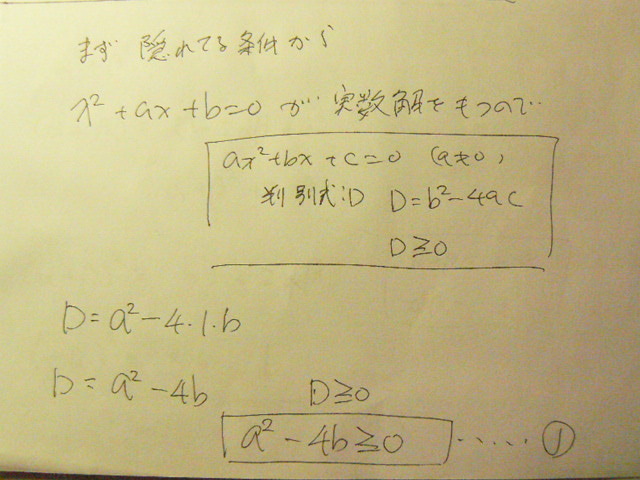 まず 隠れてる条件から
x²+ax+b=0 が 実数解をもつので…
ax²+bx+c=0 (a≠0)
判別式:D D=b²-4ac
D≧0
D=a²-4・1・b
D=a²-4b D≧0
a²-4b≧0 ……①